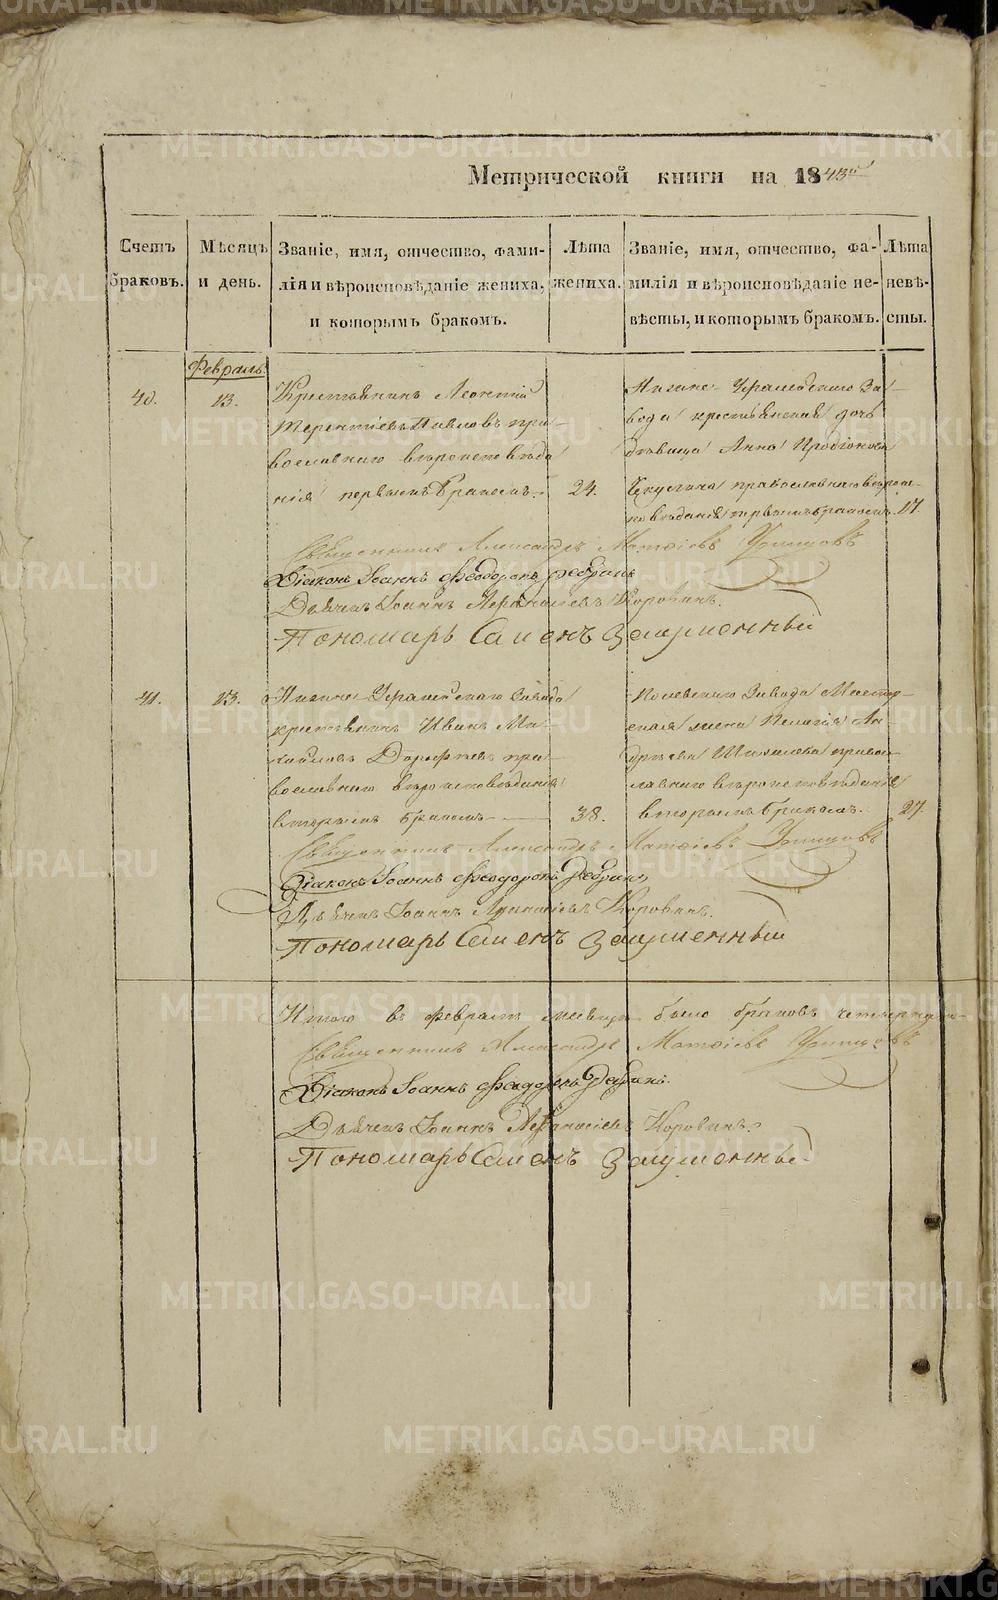 Метрической книги на 1843й
Счетъ браковъ.
Мѣсяцъ и день.
Званіе, имя, отчество, фами-
лія и вѣроисповѣданіе жениха,
и которымъ бракомъ.
Лѣта
жениха.
Званіе, имя, отчество, фа-
милія и вѣроисповѣданіе не-
вѣсты, и которымъ бракомъ.
Лѣта
невѣ-
сты.
Февраль
40.
13.
Крестьянинъ Леонтій
Терентіевъ Павловъ пра-
вославнаго вѣроисповѣда
нія первымъ бракомъ.
24.
Нижне За-
вода крестьянская дочь
дѣвица Анна Иродіонова
православнаго вѣроис-
повѣданія первымъ бракомъ.
17.
Священникъ Александръ Матѳіевъ
Діаконъ Іоаннъ Ѳеодоровъ
Дьячекъ Іоаннъ Аѳанасіевъ Коровинъ.
Пономарь Симеонъ Заушменный
41.
13.
Нижне завода
крестьянинъ Иванъ Ми-
хайловъ Дороѳеевъ пра-
вославнаго вѣроисповѣданія
вторымъ бракомъ
38.
Полевскаго Завода Мастер-
ская жена Пелагія Ан-
дреева право-
славнаго вѣроисповѣданія
вторымъ бракомъ.
27.
Священникъ Александръ Матѳіевъ
Діаконъ Іоаннъ Ѳеодоровъ
Дьячекъ Іоаннъ Аѳанасіевъ Коровинъ.
Пономарь Симеонъ Заушменный
Итого въ Февралѣ мѣсяцѣ было браковъ
Священникъ Александръ Матѳіевъ
Діаконъ Іоаннъ Ѳеодоровъ
Дьячекъ Іоаннъ Аѳанасіевъ Коровинъ.
Пономарь Симеонъ Заушменный
METRIKI.GASO-URAL.RU